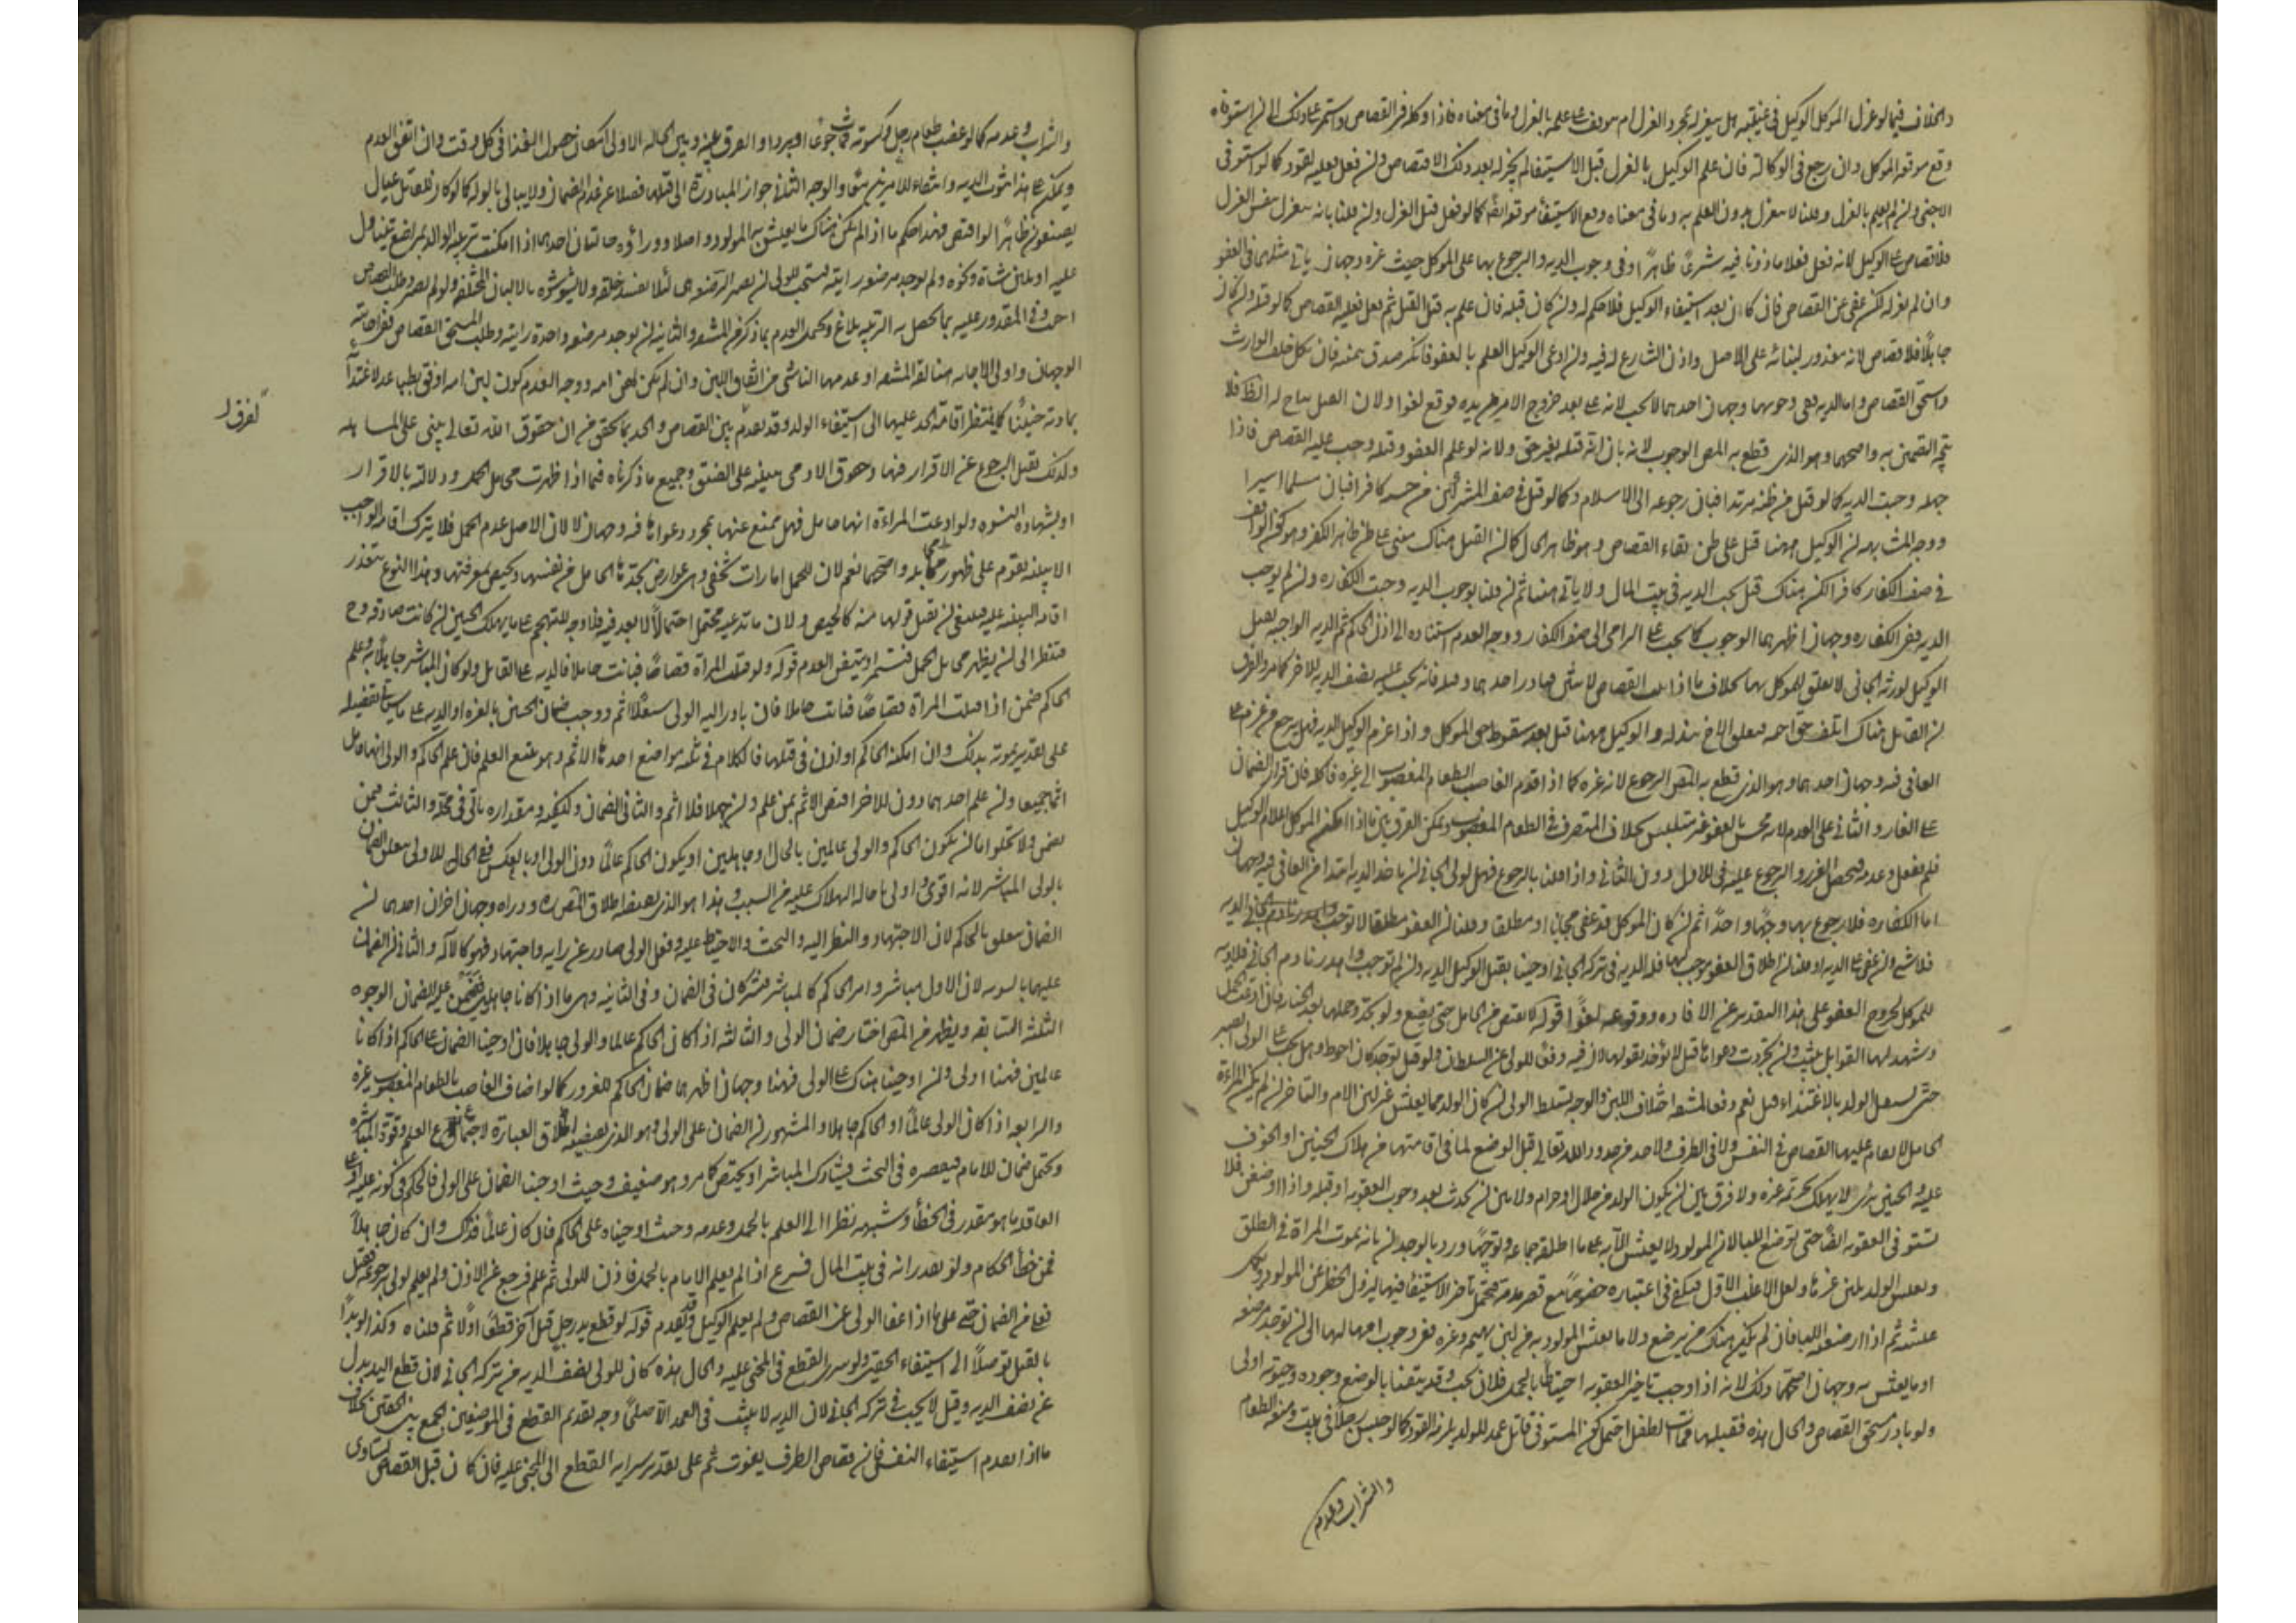 والخلاف فيما لو عزل الموكل الوكيل في غيبته هل ينعزل بمجرد العزل ام يتوقف على علمه بالعزل وما في معناه فاذا وكله في القصاص واستمر على ذلك الى ان استوفاه
وقع موقعه للموكل وان رجع في الوكالة فان علم الوكيل بالعزل قبل الاستيفاء لم يجز له بعد ذلك الاقتصاص وان فعل فعليه القود كما لو استوفى
الاجنبي وان لم يعلم بالعزل وقلنا لا ينعزل بدون العلم به وما في معناه وقع الاستيفاء موقعه ايضا كما لو فعل قبل العزل وان قلنا بانه ينعزل بنفس العزل
فلا قصاص على الوكيل لانه فعل فعلا ماذونا فيه شرعا ظاهرا وفي وجوب الدية والرجوع بها على الموكل حيث غره وجهان ياتي مثلهما في العفو
وان لم يعزله لكن عفى عن القصاص فان كان بعد استيفاء الوكيل فلا حكم له وان كان قبله فان علم به قبل القتل ثم فعل فعليه القصاص كما لو قتله وان كان
جاهلا فلا قصاص لانه معذور لبنائه على الاصل واذن الشارع له فيه وان ادعى الوكيل العلم بالعفو فانكر صدق بيمينه فان نكل حلف الوارث
واستحق القصاص واما الدية ففي وجوبها وجهان احدهما لا تجب لانه عفى بعد خروج الامر من يده فوقع لغوا ولان القتل مباح له في الظاهر فلا
يتجه التضمين به واصحهما وهو الذي قطع به المص الوجوب لانه بان انه قتله بغير حق ولانه لو علم العفو وقتله وجب عليه القصاص فاذا
جهله وجبت الدية كما لو قتل من ظنه مرتدا فبان رجوعه الى الاسلام وكما لو قتل في صف المشركين من حسبه كافرا فبان مسلما اسيرا
ووجه المشابهة ان الوكيل ههنا قتل على ظن بقاء القصاص وهو ظاهر الحال كما ان القتل هناك مبني على ظن ظاهر الكفر وهو كونه واقفا
في صف الكفار كافرا لكن هناك قيل تجب الدية في بيت المال ولا ياتي هنا ثم ان قلنا بوجوب الدية وجبت الكفارة وان لم نوجب
الدية ففي الكفارة وجهان اظهرهما الوجوب كما تجب على الرامي الى صف الكفار ووجه العدم استناده الى اذن الحاكم ثم الدية الواجبة بقتل
الوكيل لورثة الجاني لا تعلق للموكل بها بخلاف ما اذا ثبت القصاص لاثنين فبادر احدهما وقتله فانه يجب عليه نصف الدية للاخر كما مر والفرق
ان القاتل هناك اتلف حق اخيه فتعلق الاخ ببدله والوكيل ههنا قتل بعد سقوط حق الموكل واذا غرم الوكيل الدية فهل يرجع من غرم على
العافي فيه وجهان احدهما وهو الذي قطع به المص الرجوع لانه غره كما اذا قدم الغاصب الطعام المغصوب الى غيره فاكله فان قرار الضمان
على الغار والثاني على العدم لانه محسن بالعفو غير متلبس بخلاف المتصرف في الطعام المغصوب ويمكن الفرق بين ما اذا امكن الموكل اعلام الوكيل
فلم يفعل وعدمه فيحصل الغرور والرجوع عليه في الاول دون الثاني واذا قلنا بالرجوع فهل لولي الجاني ان ياخذ الدية ابتداء من العافي فيه وجهان
اما الكفارة فلا رجوع بها وجها واحدا ثم ان كان الموكل قد عفى مجانا او مطلقا وقلنا ان العفو مطلقا لا يوجب الدية
فلا شيء وان عفى على الدية او قلنا ان اطلاق العفو يوجبها فله الدية في تركة الجاني ان اوجبنا بقتل الوكيل الدية وان لم نوجب واهدرنا دم الجاني فلا دية
للموكل لخروج العفو على هذا التقدير عن الافادة ووقوعه لغوا قوله لا يقتص من الحامل حتى تضع ولو تجدد حملها بعد الجناية فان ادعت الحمل
وشهد لها القوابل ثبت وان تجردت دعواها قيل لا يؤخذ بقولها لان فيه دفعا للولي عن السلطان ولو قيل يؤخذ كان احوط وهل يجب على الولي الصبر
حتى يستقل الولد بالاغتذاء قيل نعم دفعا لمشقة اختلاف اللبن والوجه تسلط الولي ان كان للولد ما يعيش به غير لبن الام والتاخير ان لم يكن المراة
الحامل لا يقام عليها القصاص في النفس ولا في الطرف ولا حد من حدود الله تعالى قبل الوضع لما في اقامتها من هلاك الجنين او الخوف
عليه والجنين برئ لا يهلك بجريمة غيره ولا فرق بين ان يكون الولد من حلال او حرام ولا بين ان يحدث بعد وجوب العقوبة او قبله واذا وضعت فلا
تستوفى العقوبة ايضا حتى ترضع اللبا لان المولود لا يعيش الا به على ما اطلقه جماعة
ويعيش الولد بلبن غيرها ولعل الاغلب الاول فيكفي في اعتباره
عنه ثم اذا ارضعته اللبا فان لم يكن هناك من يرضع ولا ما يعيش المولود به من لبن بهيمة وغيره ففي وجوب امهالها الى ان توجد مرضعة
او ما يعيش به وجهان اصحهما ذلك لانه اذا وجب تاخير العقوبة احتياطا بالحمل فلان يجب وقد تيقنا بالوضع وجوده وحيوته اولى
ولو بادر مستحق القصاص والحال هذه فقتلها فمات الطفل احتمل كون المستوفي قاتل عمد للولد يلزمه القود كما لو حبس رجلا في بيت ومنعه الطعام
والشراب وعدمه
والشراب وعدمه كما لو غصب طعام رجل وكسوته فمات جوعا او بردا والفرق بينه وبين الحالة الاولى امكان حصول الغذا في كل وقت وان اتفق العدم
ويمكن على هذا ثبوت الدية وانتفاء الامرين والوجه الثاني جواز المبادرة الى قتلها فضلا عن عدم الضمان
عليه او بلبن شاة ونحوه ولم توجد مرضعة راتبة يستحب للولي ان يصبر لترضعه هي لئلا يفسد خلقه ولا نشوءه بالالبان المختلفة ولو لم يصبر وطلب القصاص
اجيب والمقدور عليه بما يحصل به التربية بلاغ والثانية ان توجد مرضعة واحدة راتبة وطلب المستحق القصاص ففي اجابته
الوجهان واولى الاجابة هنا لقلة المشقة او عدمها الناشي من اتفاق اللبن وان لم يكن لبن امه ووجه العدم كون لبن امه اوفق بطبعه لاغتذائه
لفرق
بمادته جنينا كما ينتظر اقامة الحد عليها الى استيفاء الولد وقد تقدم بين القصاص والحد بما يحقق من ان حقوق الله تعالى يبنى على المساهلة
ولذلك يقبل الرجوع عن الاقرار فيها وحقوق الادمي مبنية على الضيق وجميع ما ذكرناه فيما اذا ظهرت مخايل الحمل ودلالته بالاقرار
او بشهادة النسوة ولو ادعت المراة انها حامل فهل يمتنع عنها بمجرد دعواها فيه وجهان لا لان الاصل عدم الحمل فلا يترك اقامة الواجب
الا ببينة تقوم على ظهور مخايله واصحهما نعم لان للحمل امارات تخفى وهي عوارض تجدها الحامل من نفسها وتختص بمعرفتها وهذا النوع يتعذر
اقامة البينة عليه فينبغي ان يقبل قولها فيه كالحيض ولان ما تدعيه محتمل احتمالا لا بعد فيه فلا وجه للتهجم على ما يهلك الجنين ان كانت صادقة وح
فتنتظر الى ان يظهر مخايل الحمل فتستمر او يتيقن العدم قوله ولو قتلت المراة قصاصا فبانت حاملا فالدية على القاتل ولو كان المباشر جاهلا به وعلم
الحاكم ضمن اذا قتلت المراة قصاصا فبانت حاملا فان بادر اليه الولي مستقلا اثم ووجب ضمان الجنين بالغرة او الدية على ما سياتي تفصيله
على تقدير موته بذلك وان امكنه الحاكم واذن في قتلها فالكلام في ثلثة مواضع احدها الاثم وهو يتبع العلم فان علم الحاكم والولي انها حامل
اثما جميعا وان علم احدهما دون الاخر اختص الاثم بمن علم وان جهلا فلا اثم والثاني الضمان وكيفيته ومقداره ياتي في محله والثالث فيمن
يضمن ولا تخلوا اما ان يكون الحاكم والولي عالمين بالحال او جاهلين او يكون الحاكم عالما دون الولي او بالعكس ففي الحالة الاولى يتعلق الضمان
بالولي المباشر لانه اقوى واولى باحالة الهلاك عليه من السبب وهذا هو الذي يقتضيه اطلاق المص ره ووراه وجهان اخران احدهما ان
الضمان يتعلق بالحاكم لان الاجتهاد والنظر اليه والبحث والاحتياط عليه وفعل الولي صادر عن رايه واجتهاده فهو كالآلة والثاني ان الضمان
عليهما بالسوية لان الاول مباشر وامر الحاكم كالمباشر فيشتركان في الضمان وفي الثانية وهي ما اذا كانا جاهلين فيمن عليه الضمان الوجوه
الثلثة السابقة ويظهر من المص اختيار ضمان الولي والثالثة اذا كان الحاكم عالما والولي جاهلا فان اوجبنا الضمان على الحاكم اذا كانا
عالمين فهنا اولى وان اوجبنا هناك على الولي فهنا وجهان اظهرهما ضمان الحاكم للغرور كما لو اضاف الغاصب بالطعام المغصوب غيره
والرابعة اذا كان الولي عالما والحاكم جاهلا والمشهور ان الضمان على الولي وهو الذي يقتضيه اطلاق العبارة لاجتماع العلم وقوة المباشرة
ويحتمل ضمان الامام لتقصيره في البحث فيشارك المباشر او يختص كما مر وهو ضعيف وحيث اوجبنا الضمان على الولي فالحكم في كونه عليه او على
العاقلة ما هو مقدر في الخطأ وشبهه نظرا الى العلم بالحمل وعدمه وحيث اوجبناه على الحاكم فان كان عالما فذاك وان كان جاهلا
فمن خطأ الحكام وقد تقدم انه في بيت المال فرع اذا لم يعلم الامام بالحمل فاذن للولي ثم علم فرجع عن الاذن ولم يعلم الولي رجوعه فقتل
ففي الضمان على ما اذا عفا الولي عن القصاص ولم يعلم الوكيل وقد تقدم قوله لو قطع يد رجل ثم قتل آخر قطعناه اولا ثم قتلناه وكذا لو بدأ
بالقتل توصلا الى استيفاء الحقين ولو سرى القطع في المجني عليه والحال هذه كان للولي نصف الدية من تركة الجاني لان قطع اليد بدل
عن نصف الدية وقيل لا يجب في تركة الجاني لان الدية لا يثبت في العمد الا صلحا وجه تقديم القطع في الموضعين الجمع بين الحقين بخلاف
ما اذا قدم استيفاء النفس فان قصاص الطرف يفوت ثم على تقدير سراية القطع الى المجني عليه فان كان قبل القصاص